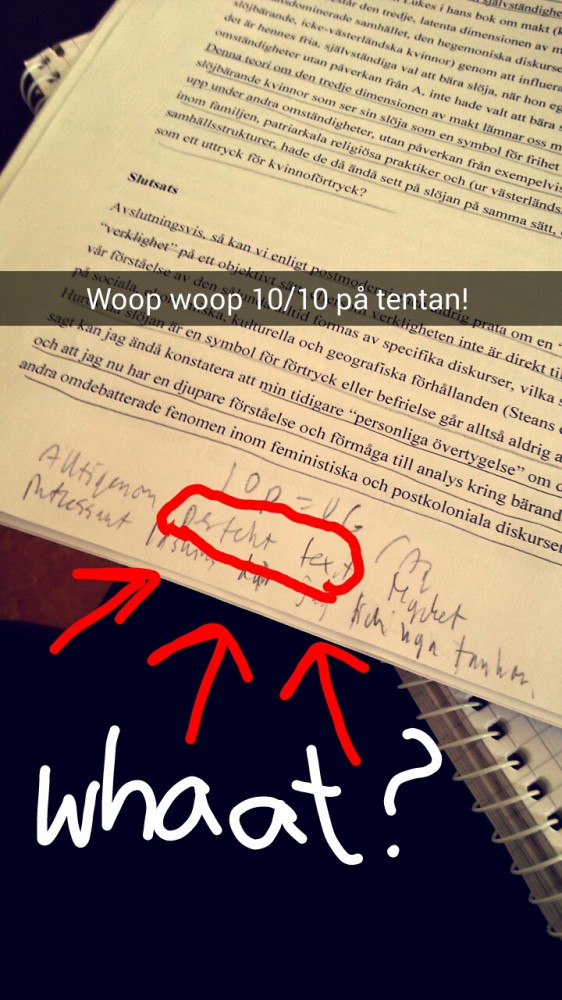 Lukes i hans bok om makt
dominerade samhället, den hegemoniska diskurs
slöjbärande, icke-västerländska kvinnor) genom att influera
det är hennes fria, självständiga val att bära slöja, när hon eg
omständigheter utan påverkan från A, inte hade valt att bära
Denna teori om den tredje dimensionen av makt lämnar oss m
slöjbärande kvinnor som ser sin slöja som en symbol för frihet
upp under andra omständigheter, utan påverkan från exempelvis
inom familjen, patriarkala religiösa praktiker och (ur västerländs
samhällsstrukturer, hade de då ändå sett på slöjan på samma sätt,
som ett uttryck för kvinnoförtryck?
Slutsats
Avslutningsvis, så kan vi enligt postmodernismen aldrig prata om en
"verklighet" på ett objektivt sätt
Woop woop 10/10 på tentan!
vår förståelse av den alltid formas av specifika diskurser, vilka
på sociala, kulturella och geografiska förhållanden (Steans
slöjan är en symbol för förtryck eller befrielse går alltså aldrig
sagt kan jag ändå konstatera att min tidigare "personliga övertygelse" om
och att jag nu har en djupare förståelse och förmåga till analys kring
andra omdebatterade fenomen inom feministiska och postkoloniala diskurser
10p = VG
Alltigenom perfekt text. Mycket
intressant läsning och nya tankar.
whaat?